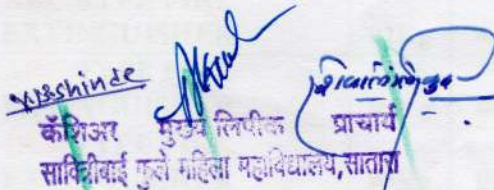 कॅशिअर मुख्य लिपीक प्राचार्य
सावित्रीबाई फुले महिला महाविद्यालय, सातारा